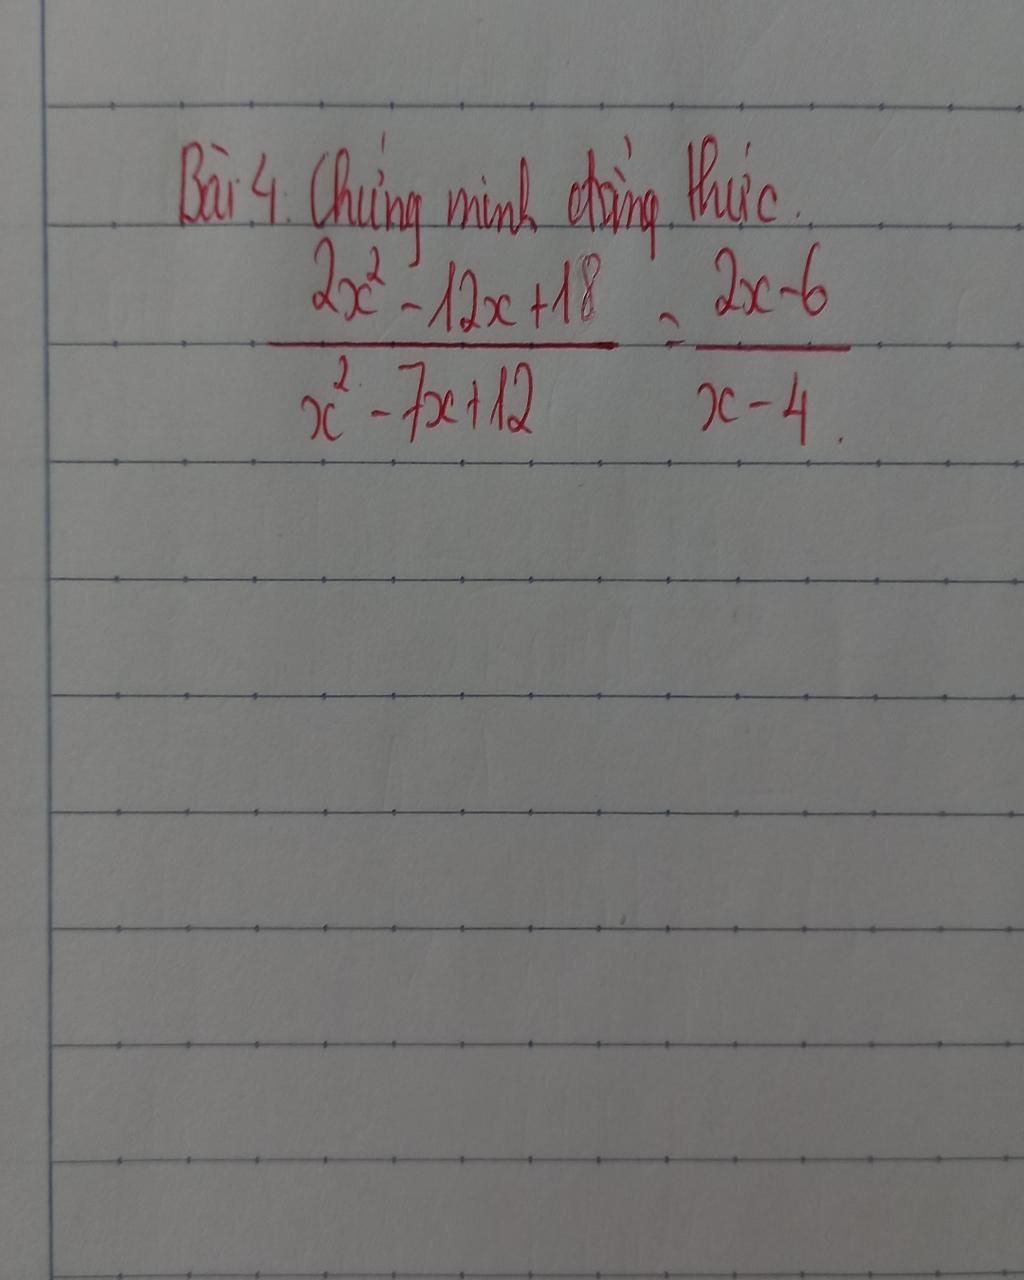 Bài 4. Chứng minh đẳng thức.
2x² - 12x + 18 = 2x - 6
x² - 7x + 12 x - 4.